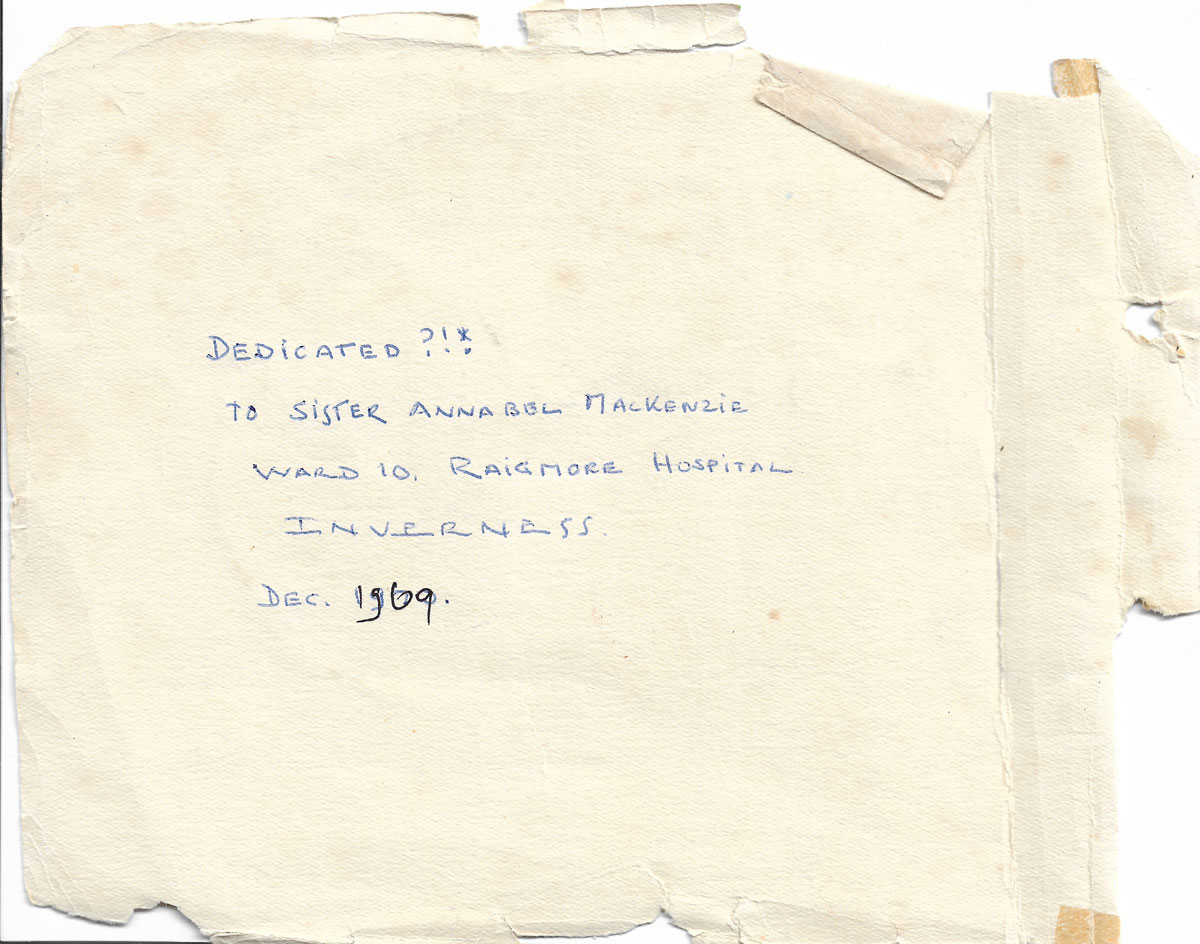 DEDICATED ?!*
TO SISTER ANNABEL MACKENZIE
WARD 10, RAIGMORE HOSPITAL
INVERNESS.
DEC. 1969.